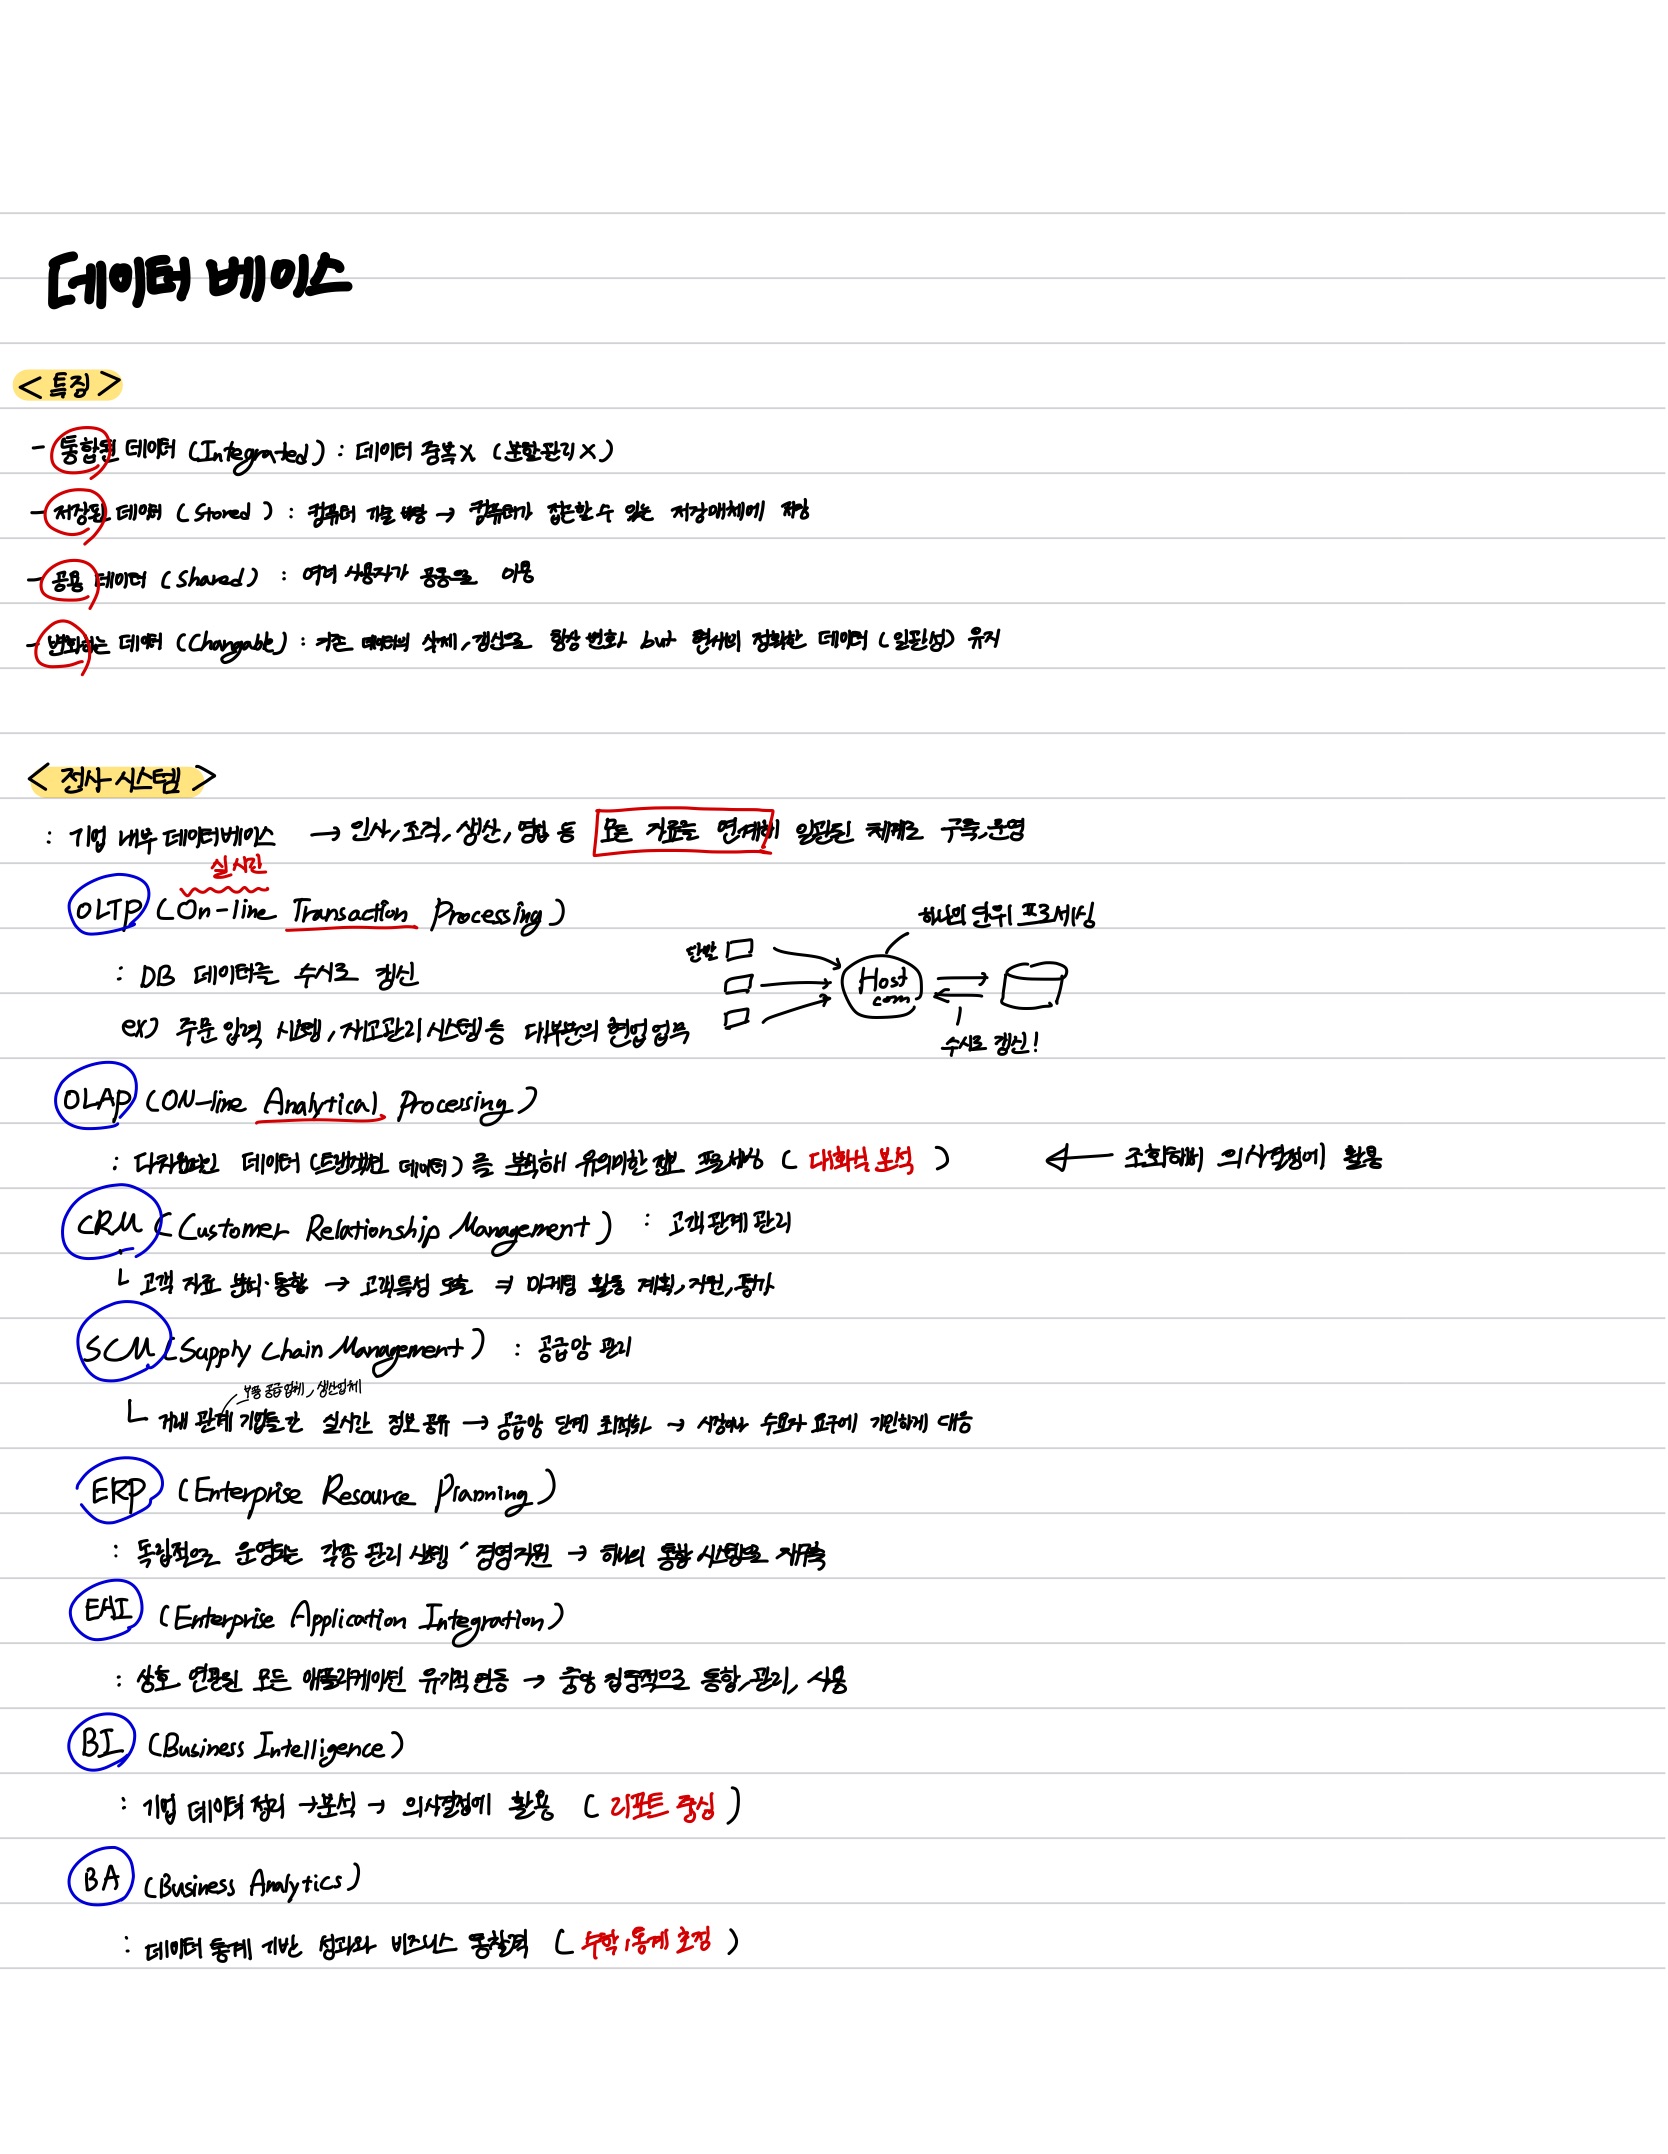 데이터 베이스
<특징>
- 통합된 데이터 (Integrated) : 데이터 중복X (분할관리X)
- 저장된 데이터 (Stored) : 컴퓨터 기술 바탕 → 컴퓨터가 접근할 수 있는 저장매체에 저장
- 공용 데이터 (Shared) : 여러 사용자가 공동으로 이용
- 변화하는 데이터 (Changable) : 기존 데이터의 삭제, 갱신으로 항상 변화 but 현재의 정확한 데이터 (일관성) 유지
<전사 시스템>
: 기업 내부 데이터베이스 → 인사, 조직, 생산, 영업 등 모든 자료를 연계해 일관된 체계로 구축, 운영
실시간
OLTP (On-line Transaction Processing)
하나의 단위 프로세싱
단말
Host com
: DB 데이터를 수시로 갱신
ex) 주문 입력 시스템, 재고관리 시스템 등 대부분의 현업 업무
수시로 갱신!
OLAP (ON-line Analytical Processing)
: 다차원적인 데이터 (트랜잭션 데이터)를 분석해 유의미한 정보 프로세싱 (대화식 분석) ← 조회해서 의사결정에 활용
CRM (Customer Relationship Management) : 고객관계관리
ㄴ 고객 자료 분석·통합 → 고객특성 도출 ⇒ 마케팅 활동 계획, 지원, 평가
SCM (Supply Chain Management) : 공급망 관리
부품 공급업체, 생산업체
ㄴ 거래 관계 기업들간 실시간 정보 공유 → 공급망 단계 최적화 → 시장이나 수요자 요구에 기민하게 대응
ERP (Enterprise Resource Planning)
: 독립적으로 운영되는 각종 관리 시스템 경영자원 → 하나의 통합 시스템으로 재구축
EAI (Enterprise Application Integration)
: 상호 연관된 모든 애플리케이션 유기적 연동 → 중앙 집중적으로 통합, 관리, 사용
BI (Business Intelligence)
: 기업 데이터 정리 → 분석 → 의사결정에 활용 (리포트 중심)
BA (Business Analytics)
: 데이터 통계 기반 성과와 비즈니스 통찰력 (수학, 통계 초점)